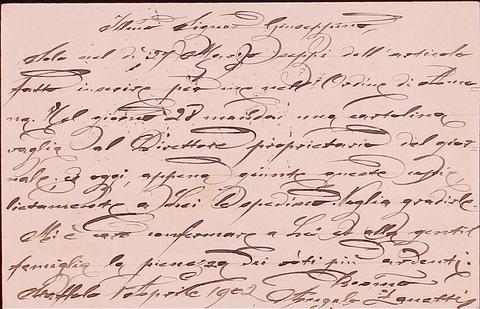 Illmo Signor Giuseppino,
Solo nel dì 27 Marzo seppi dell'articolo
fatto inserire per me nell'Ordine di
na. Nel giorno 28 mandai una cartolina
vaglia al Direttore proprietario del gior-
nale, ed oggi, appena giunte queste
lietamente a Lei le spedisco. Voglia gradirle.
Mi è caro confermare a Lei ed alla gentil
famiglia la pienezza dei voti più ardenti.
1 Aprile 1902
Angelo Zanetti